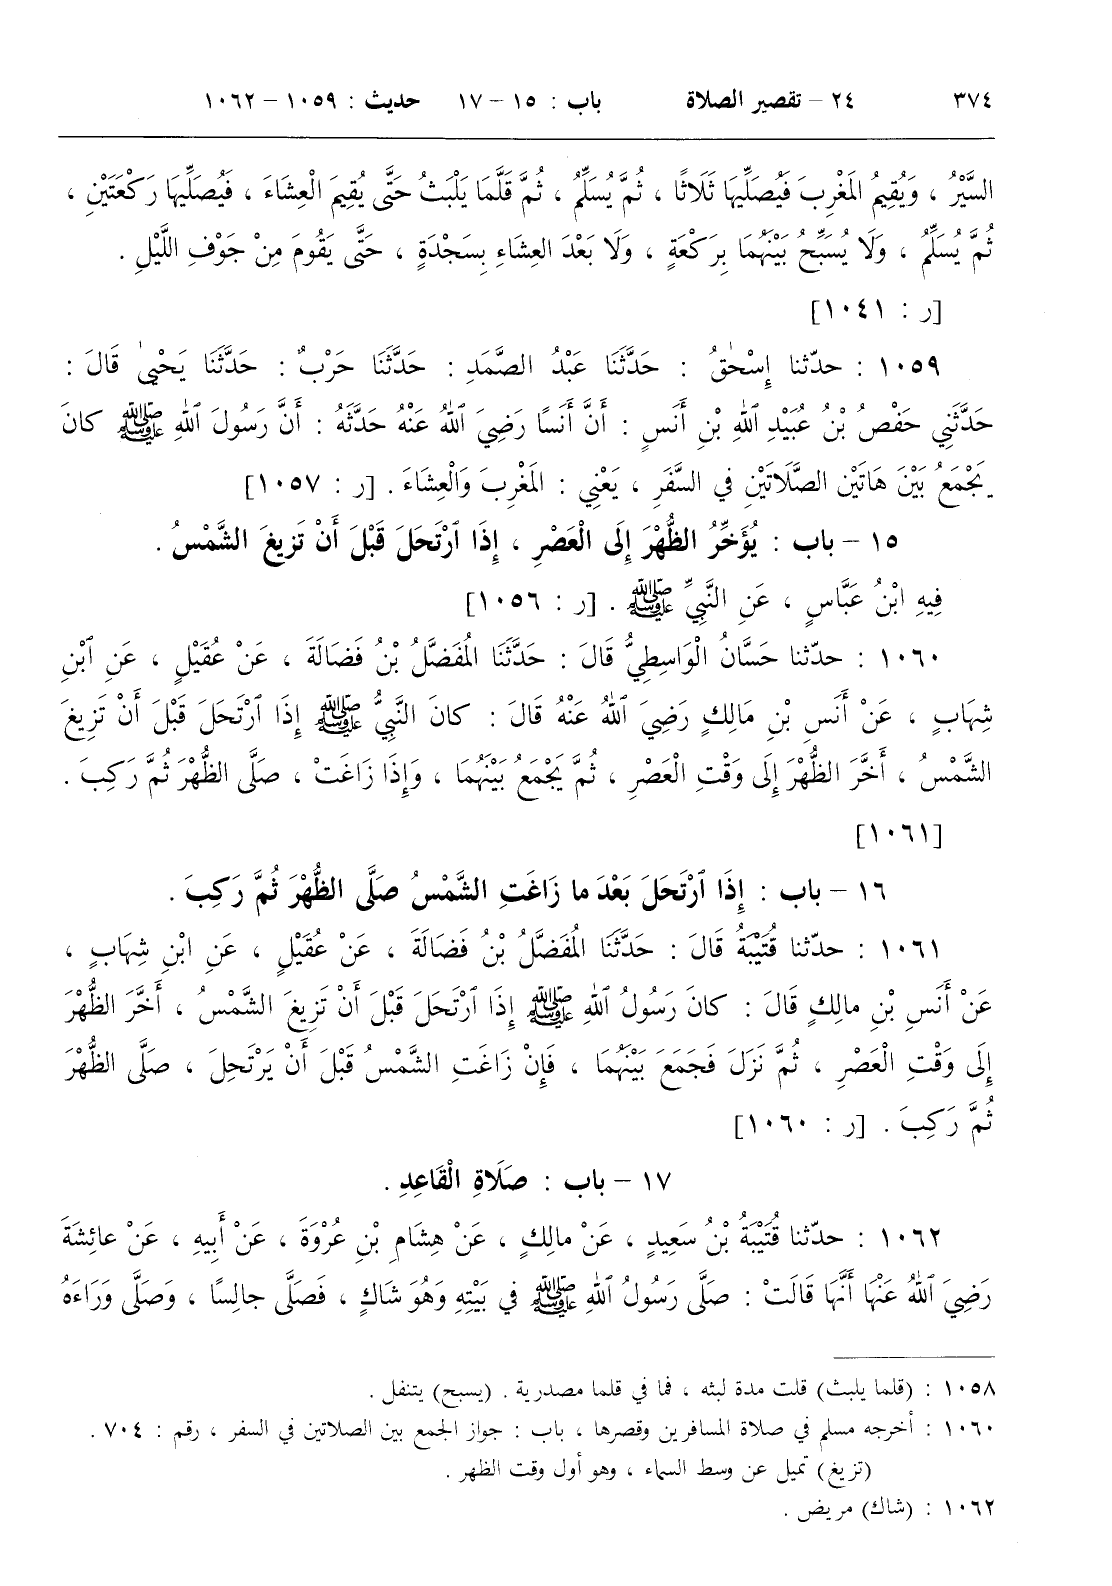 ٣٧٤ ٢٤ – تقصير الصلاة باب : ١٥ – ١٧ حديث : ١٠٥٩ – ١٠٦٢
السَّيْرُ ، وَيُقِيمُ المَغْرِبَ فَيُصَلِّيهَا ثَلَاثًا ، ثُمَّ يُسَلِّمُ ، ثُمَّ قَلَّمَا يَلْبَثُ حَتَّى يُقِيمَ الْعِشَاءَ ، فَيُصَلِّيهَا رَكْعَتَيْنِ ،
ثُمَّ يُسَلِّمُ ، وَلَا يُسَبِّحُ بَيْنَهُمَا بِرَكْعَةٍ ، وَلَا بَعْدَ العِشَاءِ بِسَجْدَةٍ ، حَتَّى يَقُومَ مِنْ جَوْفِ اللَّيْلِ .
[ر : ١٠٤١]
١٠٥٩ : حدّثنا إِسْحٰقُ : حَدَّثَنَا عَبْدُ الصَّمَدِ : حَدَّثَنَا حَرْبٌ : حَدَّثَنَا يَحْيىٰ قَالَ :
حَدَّثَنِي حَفْصُ بْنُ عُبَيْدِ ٱللهِ بْنِ أَنَسٍ : أَنَّ أَنَسًا رَضِيَ ٱللهُ عَنْهُ حَدَّثَهُ : أَنَّ رَسُولَ ٱللهِ ﷺ كانَ
يَجْمَعُ بَيْنَ هَاتَيْنِ الصَّلَاتَيْنِ في السَّفَرِ ، يَعْنِي : المَغْرِبَ وَالْعِشَاءَ . [ر : ١٠٥٧]
١٥ – باب : يُؤَخِّرُ الظُّهْرَ إِلَى الْعَصْرِ ، إِذَا ٱرْتَحَلَ قَبْلَ أَنْ تَزِيغَ الشَّمْسُ .
فِيهِ ابْنُ عَبَّاسٍ ، عَنِ النَّبِيِّ ﷺ . [ر : ١٠٥٦]
١٠٦٠ : حدّثنا حَسَّانُ الْوَاسِطِيُّ قَالَ : حَدَّثَنَا المُفَضَّلُ بْنُ فَضَالَةَ ، عَنْ عُقَيْلٍ ، عَنِ ٱبْنِ
شِهَابٍ ، عَنْ أَنَسِ بْنِ مَالِكٍ رَضِيَ ٱللهُ عَنْهُ قَالَ : كانَ النَّبِيُّ ﷺ إِذَا ٱرْتَحَلَ قَبْلَ أَنْ تَزِيغَ
الشَّمْسُ ، أَخَّرَ الظُّهْرَ إِلَى وَقْتِ الْعَصْرِ ، ثُمَّ يَجْمَعُ بَيْنَهُمَا ، وَإِذَا زَاغَتْ ، صَلَّى الظُّهْرَ ثُمَّ رَكِبَ .
[١٠٦١]
١٦ – باب : إِذَا ٱرْتَحَلَ بَعْدَ ما زَاغَتِ الشَّمْسُ صَلَّى الظُّهْرَ ثُمَّ رَكِبَ .
١٠٦١ : حدّثنا قُتَيْبَةُ قَالَ : حَدَّثَنَا المُفَضَّلُ بْنُ فَضَالَةَ ، عَنْ عُقَيْلٍ ، عَنِ ابْنِ شِهَابٍ ،
عَنْ أَنَسِ بْنِ مالِكٍ قَالَ : كانَ رَسُولُ ٱللهِ ﷺ إِذَا ٱرْتَحَلَ قَبْلَ أَنْ تَزِيغَ الشَّمْسُ ، أَخَّرَ الظُّهْرَ
إِلَى وَقْتِ الْعَصْرِ ، ثُمَّ نَزَلَ فَجَمَعَ بَيْنَهُمَا ، فَإِنْ زَاغَتِ الشَّمْسُ قَبْلَ أَنْ يَرْتَحِلَ ، صَلَّى الظُّهْرَ
ثُمَّ رَكِبَ . [ر : ١٠٦٠]
١٧ – باب : صَلَاةِ الْقَاعِدِ .
١٠٦٢ : حدّثنا قُتَيْبَةُ بْنُ سَعِيدٍ ، عَنْ مالِكٍ ، عَنْ هِشَامِ بْنِ عُرْوَةَ ، عَنْ أَبِيهِ ، عَنْ عائِشَةَ
رَضِيَ ٱللهُ عَنْهَا أَنَّهَا قَالَتْ : صَلَّى رَسُولُ ٱللهِ ﷺ في بَيْتِهِ وَهُوَ شَاكٍ ، فَصَلَّى جالِسًا ، وَصَلَّى وَرَاءَهُ
١٠٥٨ : (قلما يلبث) قلت مدة لبثه ، فما في قلما مصدرية . (يسبح) يتنفل .
١٠٦٠ : أخرجه مسلم في صلاة المسافرين وقصرها ، باب : جواز الجمع بين الصلاتين في السفر ، رقم : ٧٠٤ .
(تزيغ) تميل عن وسط السماء ، وهو أول وقت الظهر .
١٠٦٢ : (شاك) مريض .